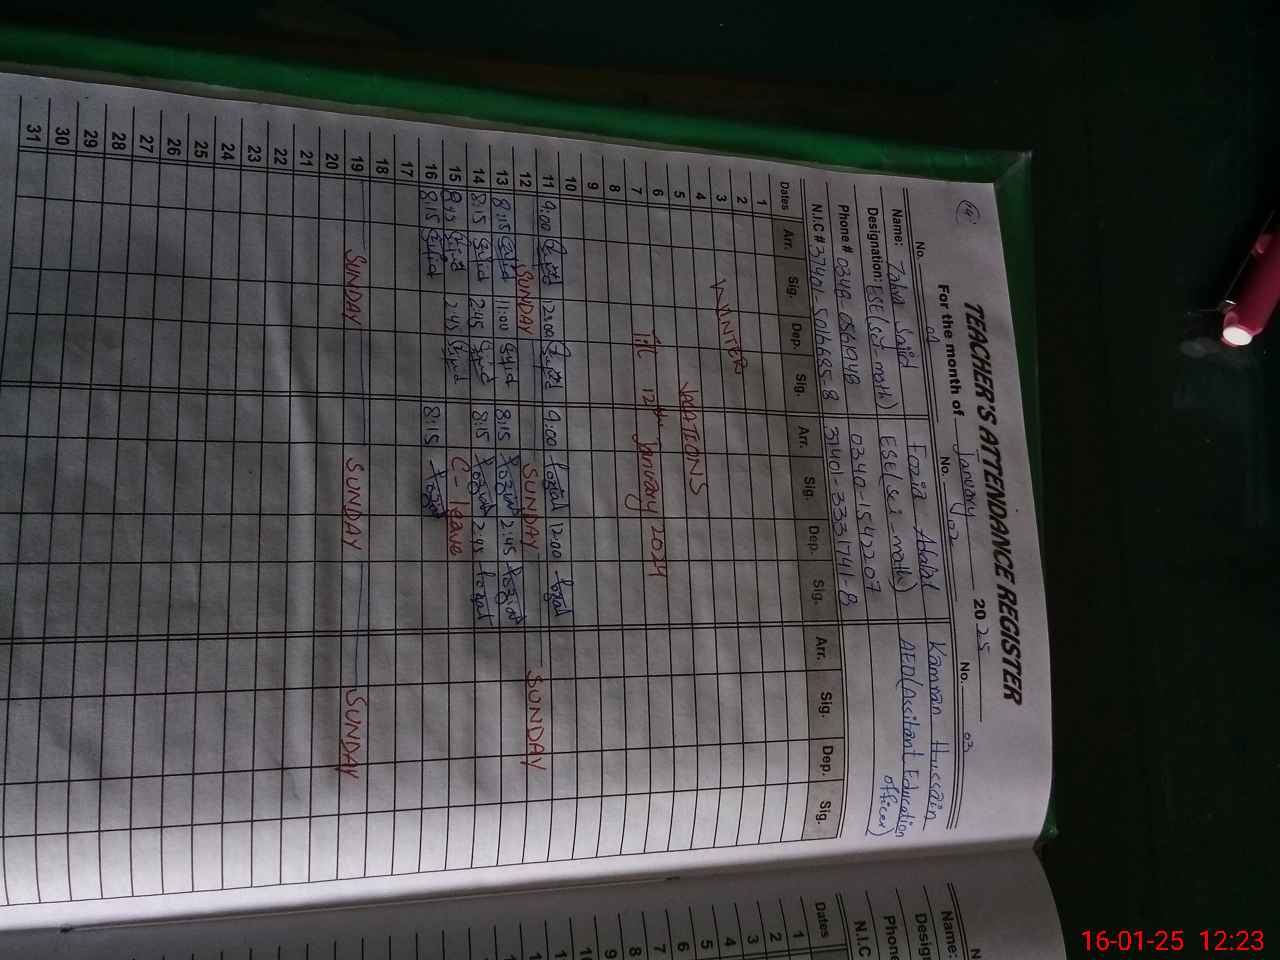 14
TEACHER'S ATTENDANCE REGISTER
For the month of January 2025
No. 01 No. 02 No. 03
Name: Zahra Sajid Fozia Adalat Kamran Hussain
Designation: ESE(sci-math) ESE(sci-math) AEO(Assitant Education officer)
Phone # 0340-1542207
N.I.C # 31401-3331741-8
Dates Arr. Sig. Dep. Sig. Arr. Sig. Dep. Sig. Arr. Sig. Dep. Sig.
1
2
3 WINTER
4
5 VACATIONS
6
7 till 12th January 2024
8
9
10
11 9:00 12:00 9:00 12:00
12 SUNDAY SUNDAY SUNDAY
13 8:15 11:00 8:15 2:45
14 8:15 2:45 8:15 2:45
15 8:45 2:45 C-leave
16 8:15 8:15
17
18
19 SUNDAY SUNDAY SUNDAY
20
21
22
23
24
25
26
27
28
29
30
31
Name:
Phone
N.I.C
Dates
1
2
3
4
5
6
7
8
9
16-01-25 12:23